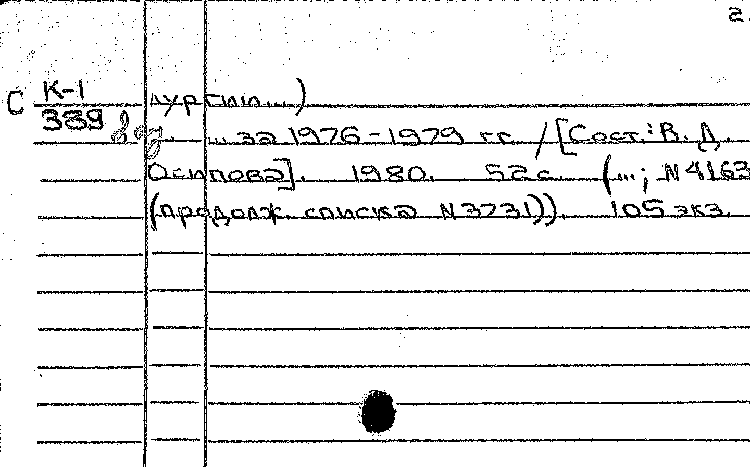 2.
С К-1 лургии...)
339 ... за 1976-1979 гг. /[Сост.: В. Д.
Осипова]. 1980. 52 с. (...; N 4163
(продолж. списка N 3731)). 105 экз.